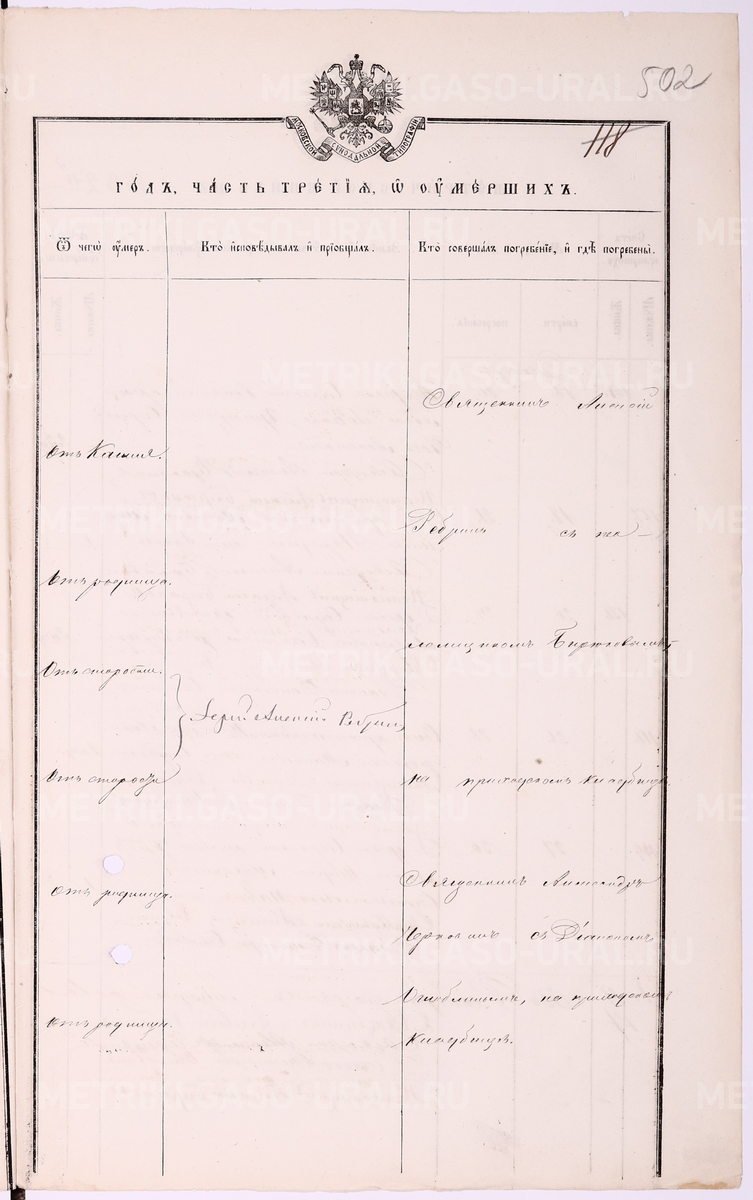 502
118
МОСКОВСКОЙ СѴНОДАЛЬНОЙ ТИПОГРАФІИ
ГО́ДЪ, ЧА́СТЬ ТРЕ́ТІѦ, Ѿ ОУ҆МЕ́РШИХЪ.
Ѿ чегѡ̀ ᲂу҆́меръ.
Кто̀ и҆сповѣ́дывалъ и҆ приѡбща́лъ.
Кто̀ соверша́лъ погребе́нїе, и҆ гдѣ̀ погребены̀.
Священникъ Алексій
Отъ Кашля.
Ребринъ съ пса-
Отъ родимца.
ломщикомъ Бирюковымъ
Отъ старости.
Іерей Алексій Ребринъ
Отъ старости
на приходскомъ кладбищѣ.
Отъ родимца.
Священникъ Александръ
съ Діакономъ
на приходскомъ
Отъ родимца.
кладбищѣ.
METRIKI.GASO-URAL.RU